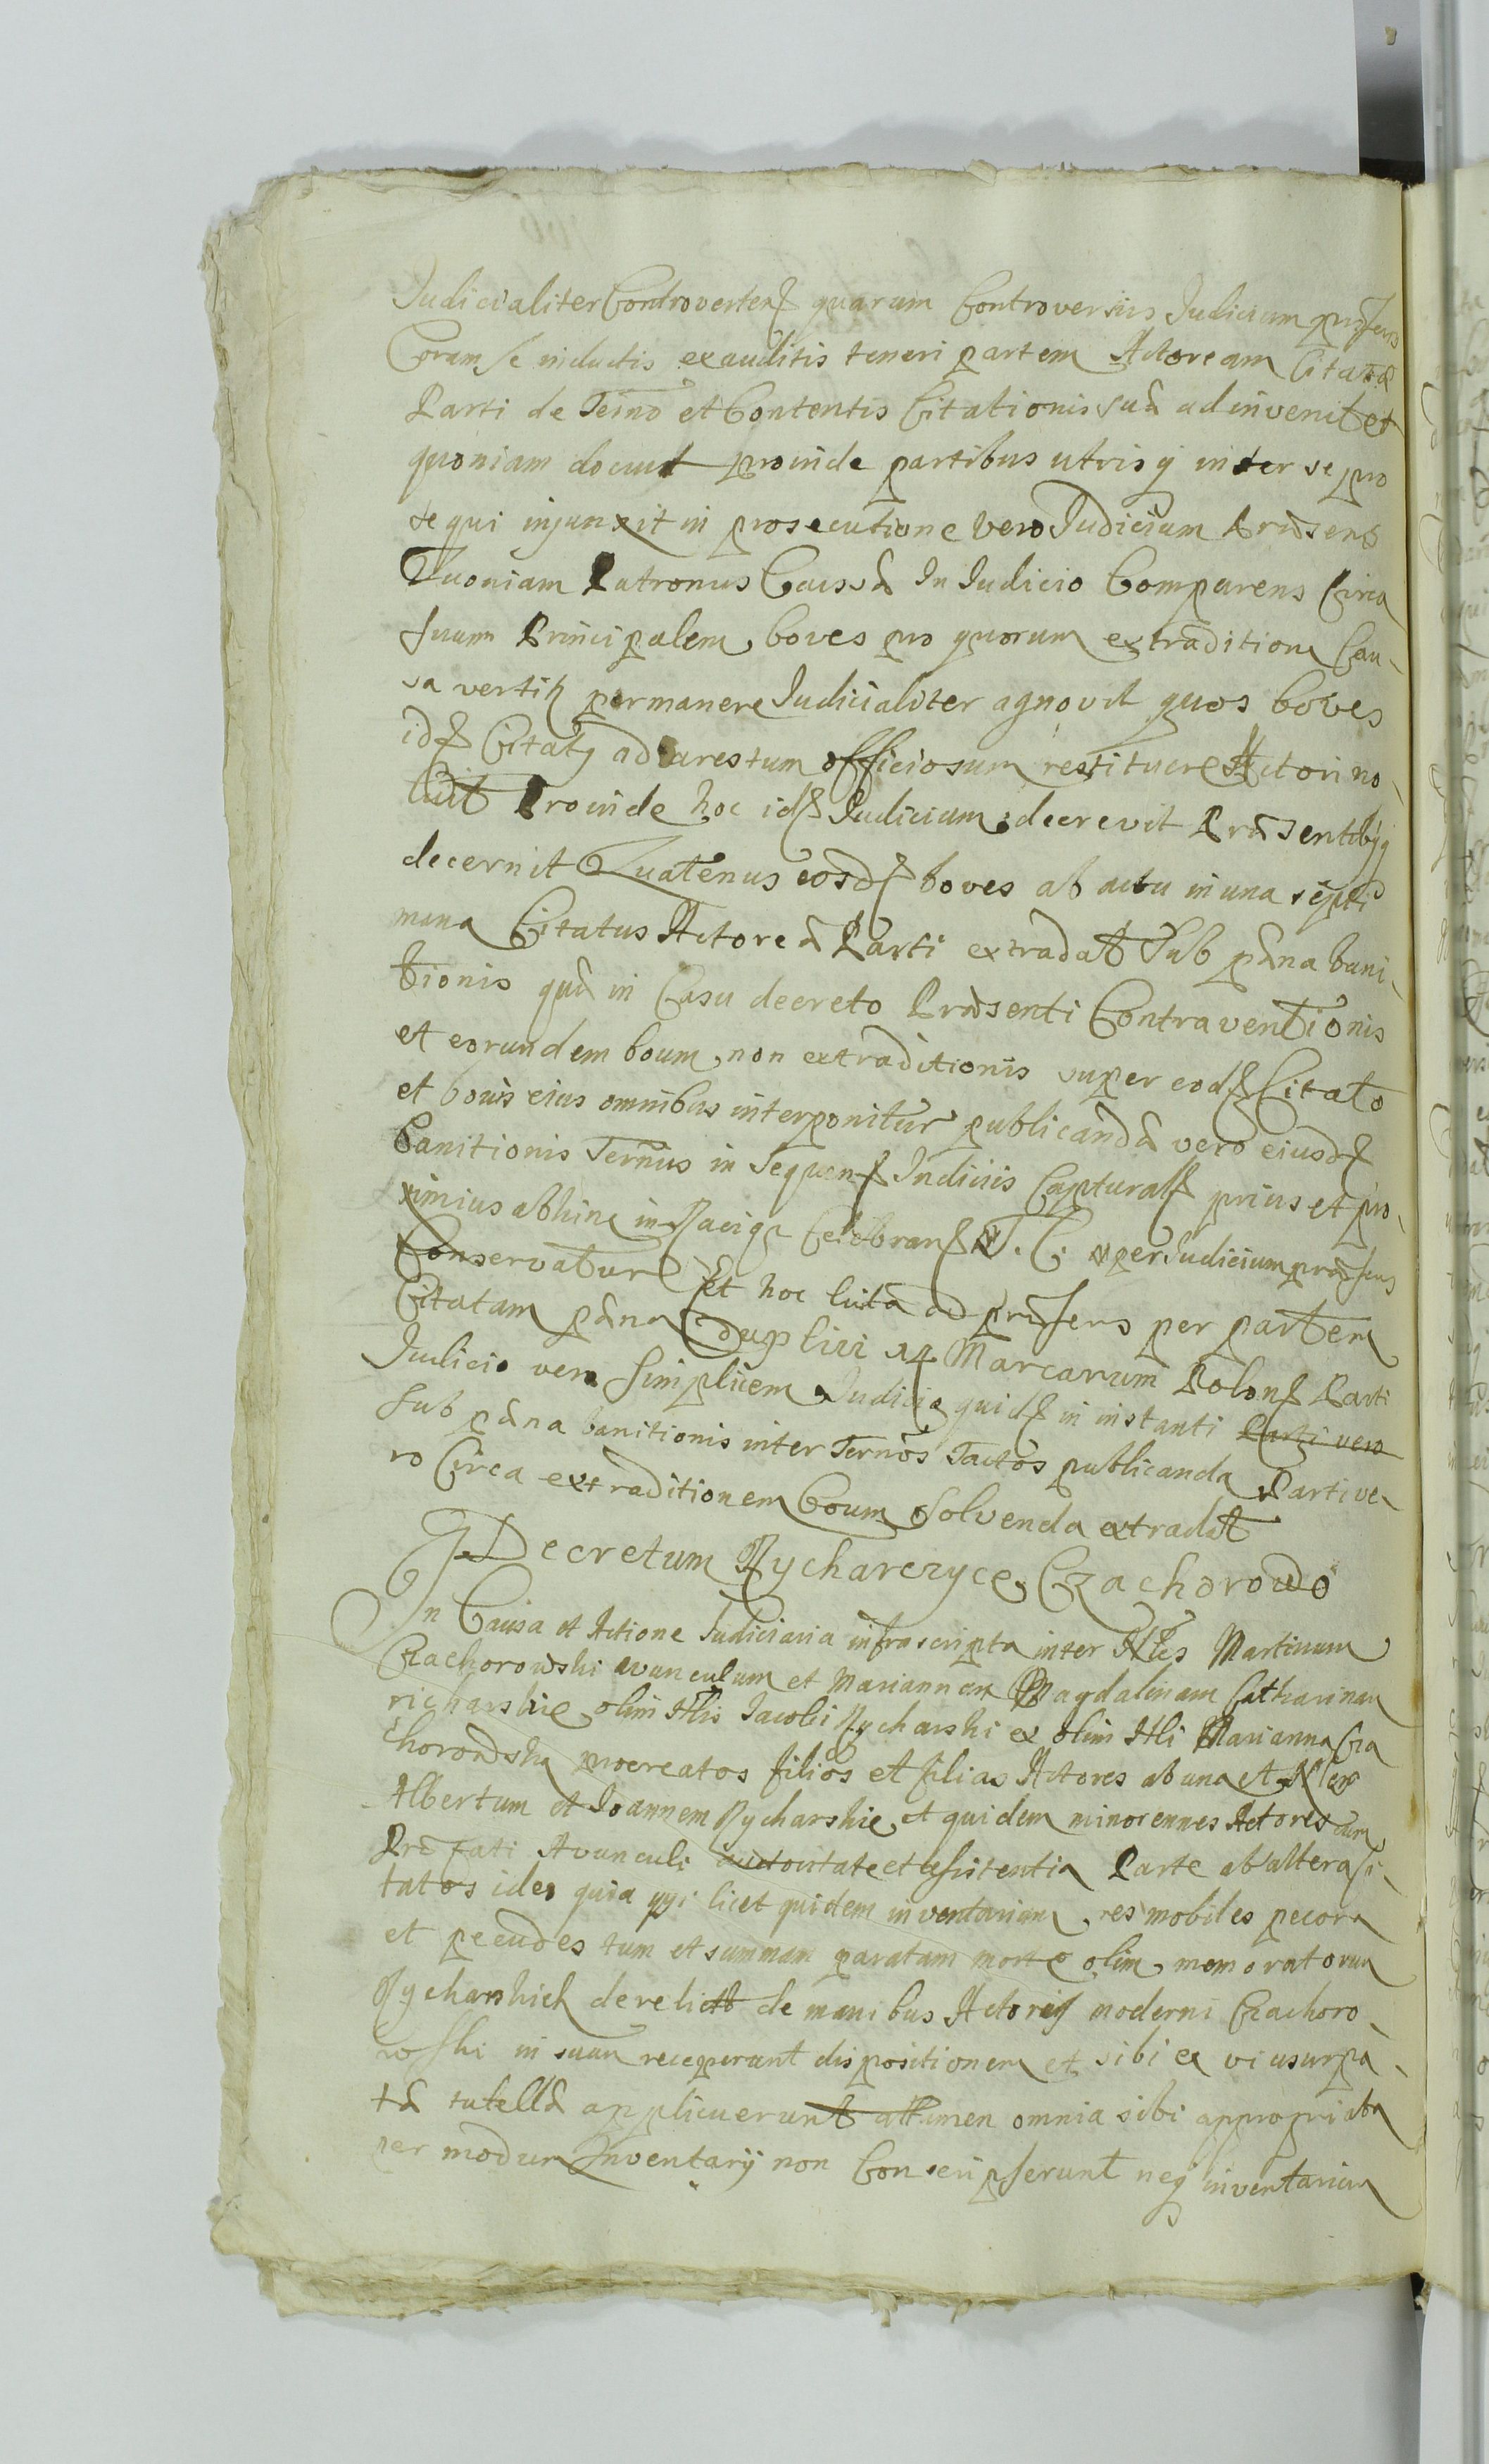 Judicialiter Controverten quarum Controversiis Judicium præsens
Coram se inductis exauditis teneri partem Actoream Citatæ
Parti de Termo et Contentis Citationis suæ adinvenit et
quoniam docuit proinde partibus utrisq inter se pro
sequi injunxit in prosecutione vero Judicium Præsens
Quoniam Patronus Caussæ In Judicio Comparens Circa
suum Principalem boves pro quorum extraditione Cau-
sa vertitr permanere Judicialiter agnovit quos boves
id Citatq ad arestum officiosum restituere Actori no-
luit Proinde hoc id Judicium decrevit Præsentibq
decernit Quatenus eosd boves ab actu in una septi
mana Citatus Actoreæ Parti extradat Sub pæna bani-
tionis quæ in Casu decreto Præsenti Contraventionis
et eorundem boum non extraditionis super eod Citato
et bonis eius omnibus interponitur publicandæ vero eiusd
Banitionis Termus in Sequen Judiciis Captural prius et pro-
ximius abhinc in Raciąz Celebran T. C. per Judicium præsens
Conservatur Et hoc luita ad præsens per partem
Citatam pæna duplici 14 Marcarum Polon Parti
Judicio vero simplicem Judicio quid in instanti Parti vero
Sub pæna banitionis inter Termos Tactos publicanda Parti ve-
ro Circa extraditionem boum solvenda extradit
Decretum Rycharczyce Czachorowo
In Causa et Actione Judiciaria infrascripta inter Nles Martinum
Czachorowski avunculum et Mariannam Magdalenam Catharinam
richarskie olim Nlis Jacobi Rycharski ex olim Nli Marianna Cza
chorowska procreatos filios et filias Actores ab una et Nles
Albertum et Joannem Rycharskie et quidem minorennes Actores cum
Præfati Avunculi authoritate et assistentia Parte ab altera Ci-
tatos ideo quia ipsi licet quidem inventarium res mobiles pecora
et pecudes tum et summam paratam morte olim memoratorum
Rycharskich derelict de manibus Actoris moderni Czachoro-
wski in suam receperunt dispositionem et sibi ex vi usurpa-
tæ tutellæ applicuerunt attamen omnia sibi appropriata
per modum Inventarij non Conscripserunt neq inventarium